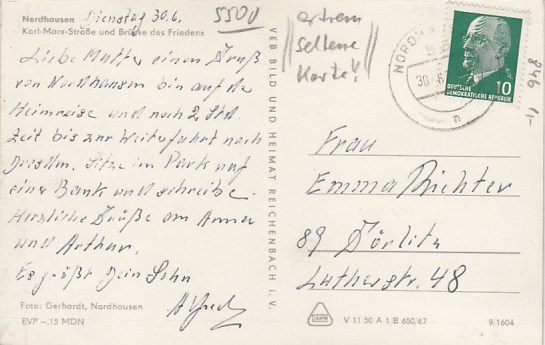 Nordhausen Dienstag 30.6.
Karl-Marx-Straße und Brücke des Friedens
Liebe Mutter einen Gruß
von Nordhausen bin auf der
Heimreise und noch 2 Std.
Zeit bis zur Weiterfahrt nach
Dresden. Sitze im Park auf
einer Bank und schreibe.
Herzliche Grüße an Anna
und Arthur.
Es grüßt Dein Sohn
Alfred
Foto: Gerhardt, Nordhausen
EVP –,15 MDN
5500
VEB BILD UND HEIMAT REICHENBACH i. V.
extrem
seltene
Karte!!
NORDHA
30.6.
n
10
DEUTSCHE
DEMOKRATISCHE REPUBLIK
846 1,-
Frau
Emma Richter
89 Görlitz
Lutherstr. 48
V 11 50 A 1/B 650/67
9/1604